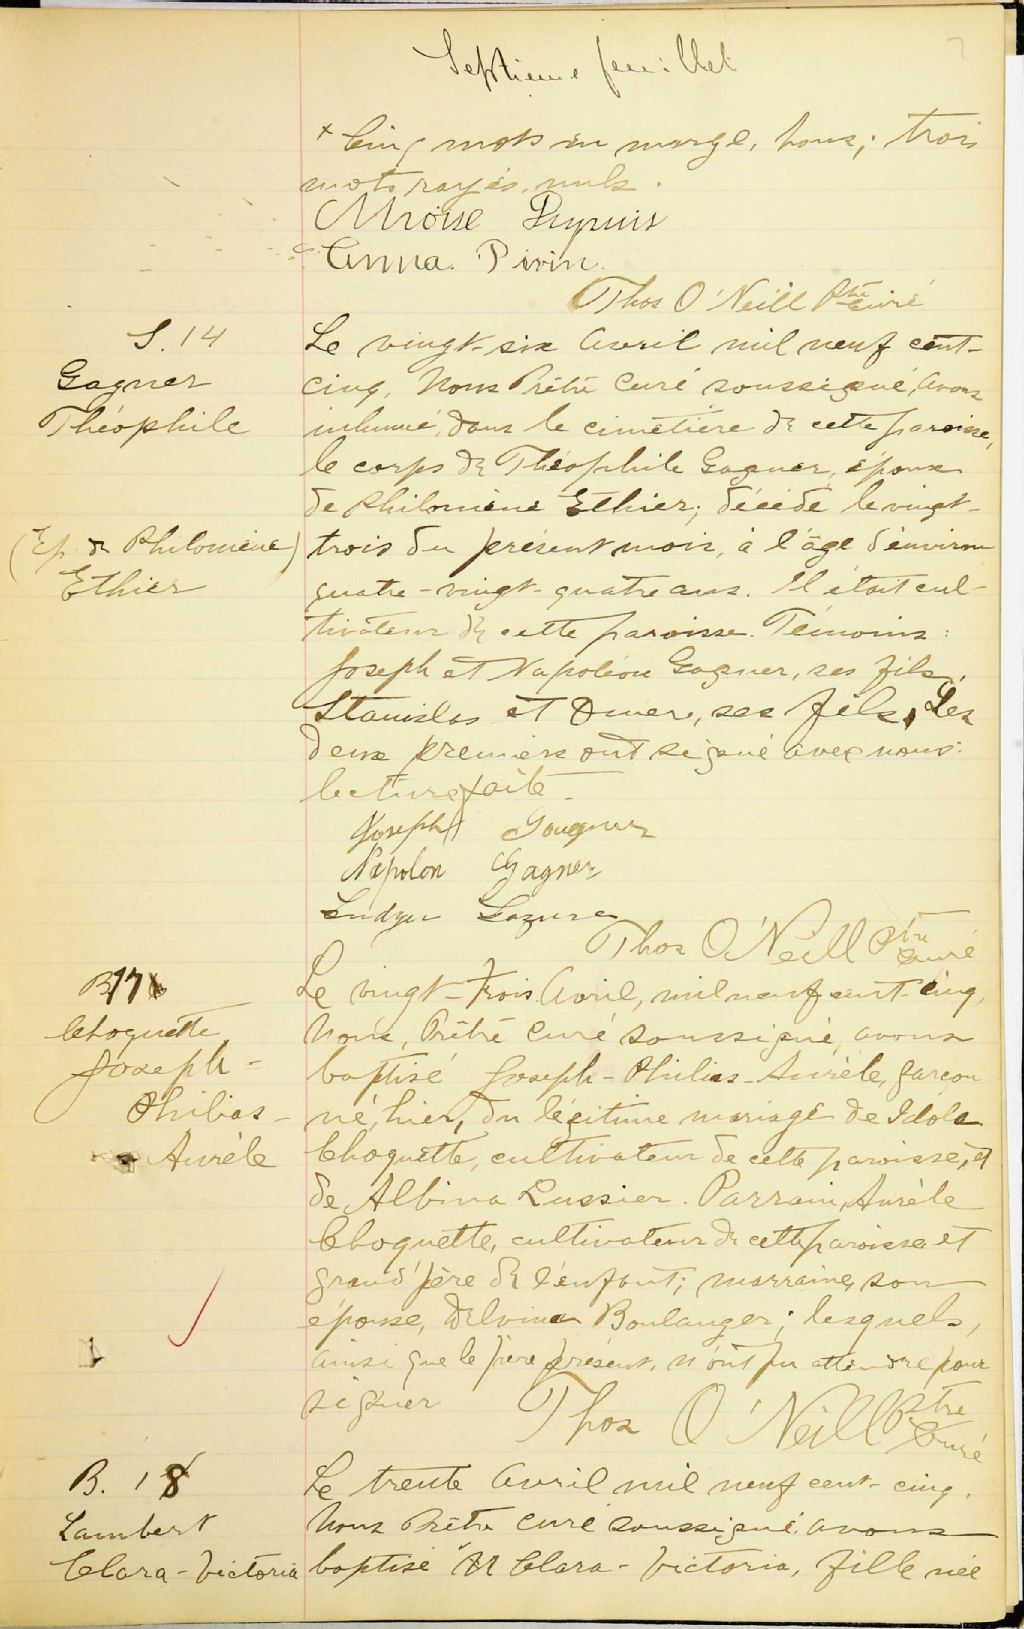 Septième feuillet
x Cinq mots en marge, bons; trois
mots rayés, nuls.
Moïse Dupuis
Anna Pivin
Thos O'Neill Ptre curé
S. 14
Gagner
Théophile
(Ep. de Philomène
Ethier)
Le vingt-six Avril mil neuf cent-
cinq, Nous Prêtre Curé soussigné, avons
inhumé, dans le cimetière de cette paroisse,
le corps de Théophile Gagner, époux
de Philomène Ethier, décédé le vingt-
trois du présent mois, à l'âge d'environ
quatre-vingt-quatre ans. Il était cul-
tivateur de cette paroisse. Témoins:
Joseph et Napoléon Gagner, ses fils,
Stanislas et Omer, ses fils, Les
deux premiers ont signé avec nous:
lecture faite.
Joseph Gougner
Napolon Gagner
Thos O'Neill Ptre curé
B. 17
Choquette
Joseph-
Philias-
Aurèle
Le vingt-trois Avril, mil neuf cent-cinq,
Nous, Prêtre Curé soussigné, avons
baptisé Joseph-Philias-Aurèle, garçon
né, hier, du légitime mariage de Idola
Choquette, cultivateur de cette paroisse, et
de Albina Lussier. Parrain, Aurèle
Choquette, cultivateur de cette paroisse et
grand'père de l'enfant; marraine, son
épouse, Delvina Boulanger; lesquels,
ainsi que le père présent, n'ont pu attendre pour
signer Thos O'Neill Ptre curé
B. 18
Lambert
Clara-Victoria
Le trente Avril mil neuf cent-cinq,
Nous Prêtre curé soussigné, avons
baptisé M Clara-Victoria, fille née